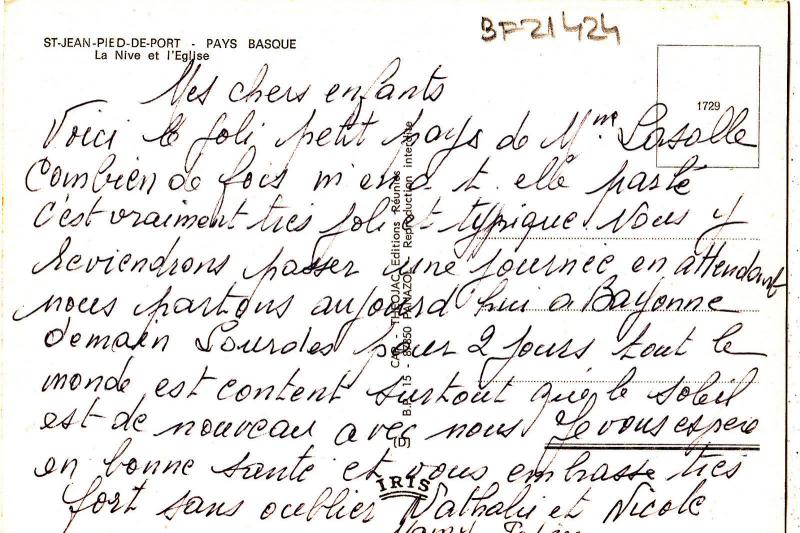 BF21424
ST-JEAN-PIED-DE-PORT - PAYS BASQUE
La Nive et l'Eglise
1729
Mes chers enfants
Voici le joli petit pays de Mme Lasalle
Combien de fois m'en a t. elle parlé
c'est vraiment très joli et typique Nous y
reviendrons passer une journée en attendant
nous partons aujourd'hui a Bayonne
demain Lourdes pour 2 jours tout le
monde est content surtout que le soleil
est de nouveau avec nous Je vous espere
en bonne santé et vous embrasse très
fort sans oublier Nathalie et Nicole
CAP - THEOJAC Editions Réunies
B.P. 15 - 87350 PANAZOL Reproduction interdite
IRIS